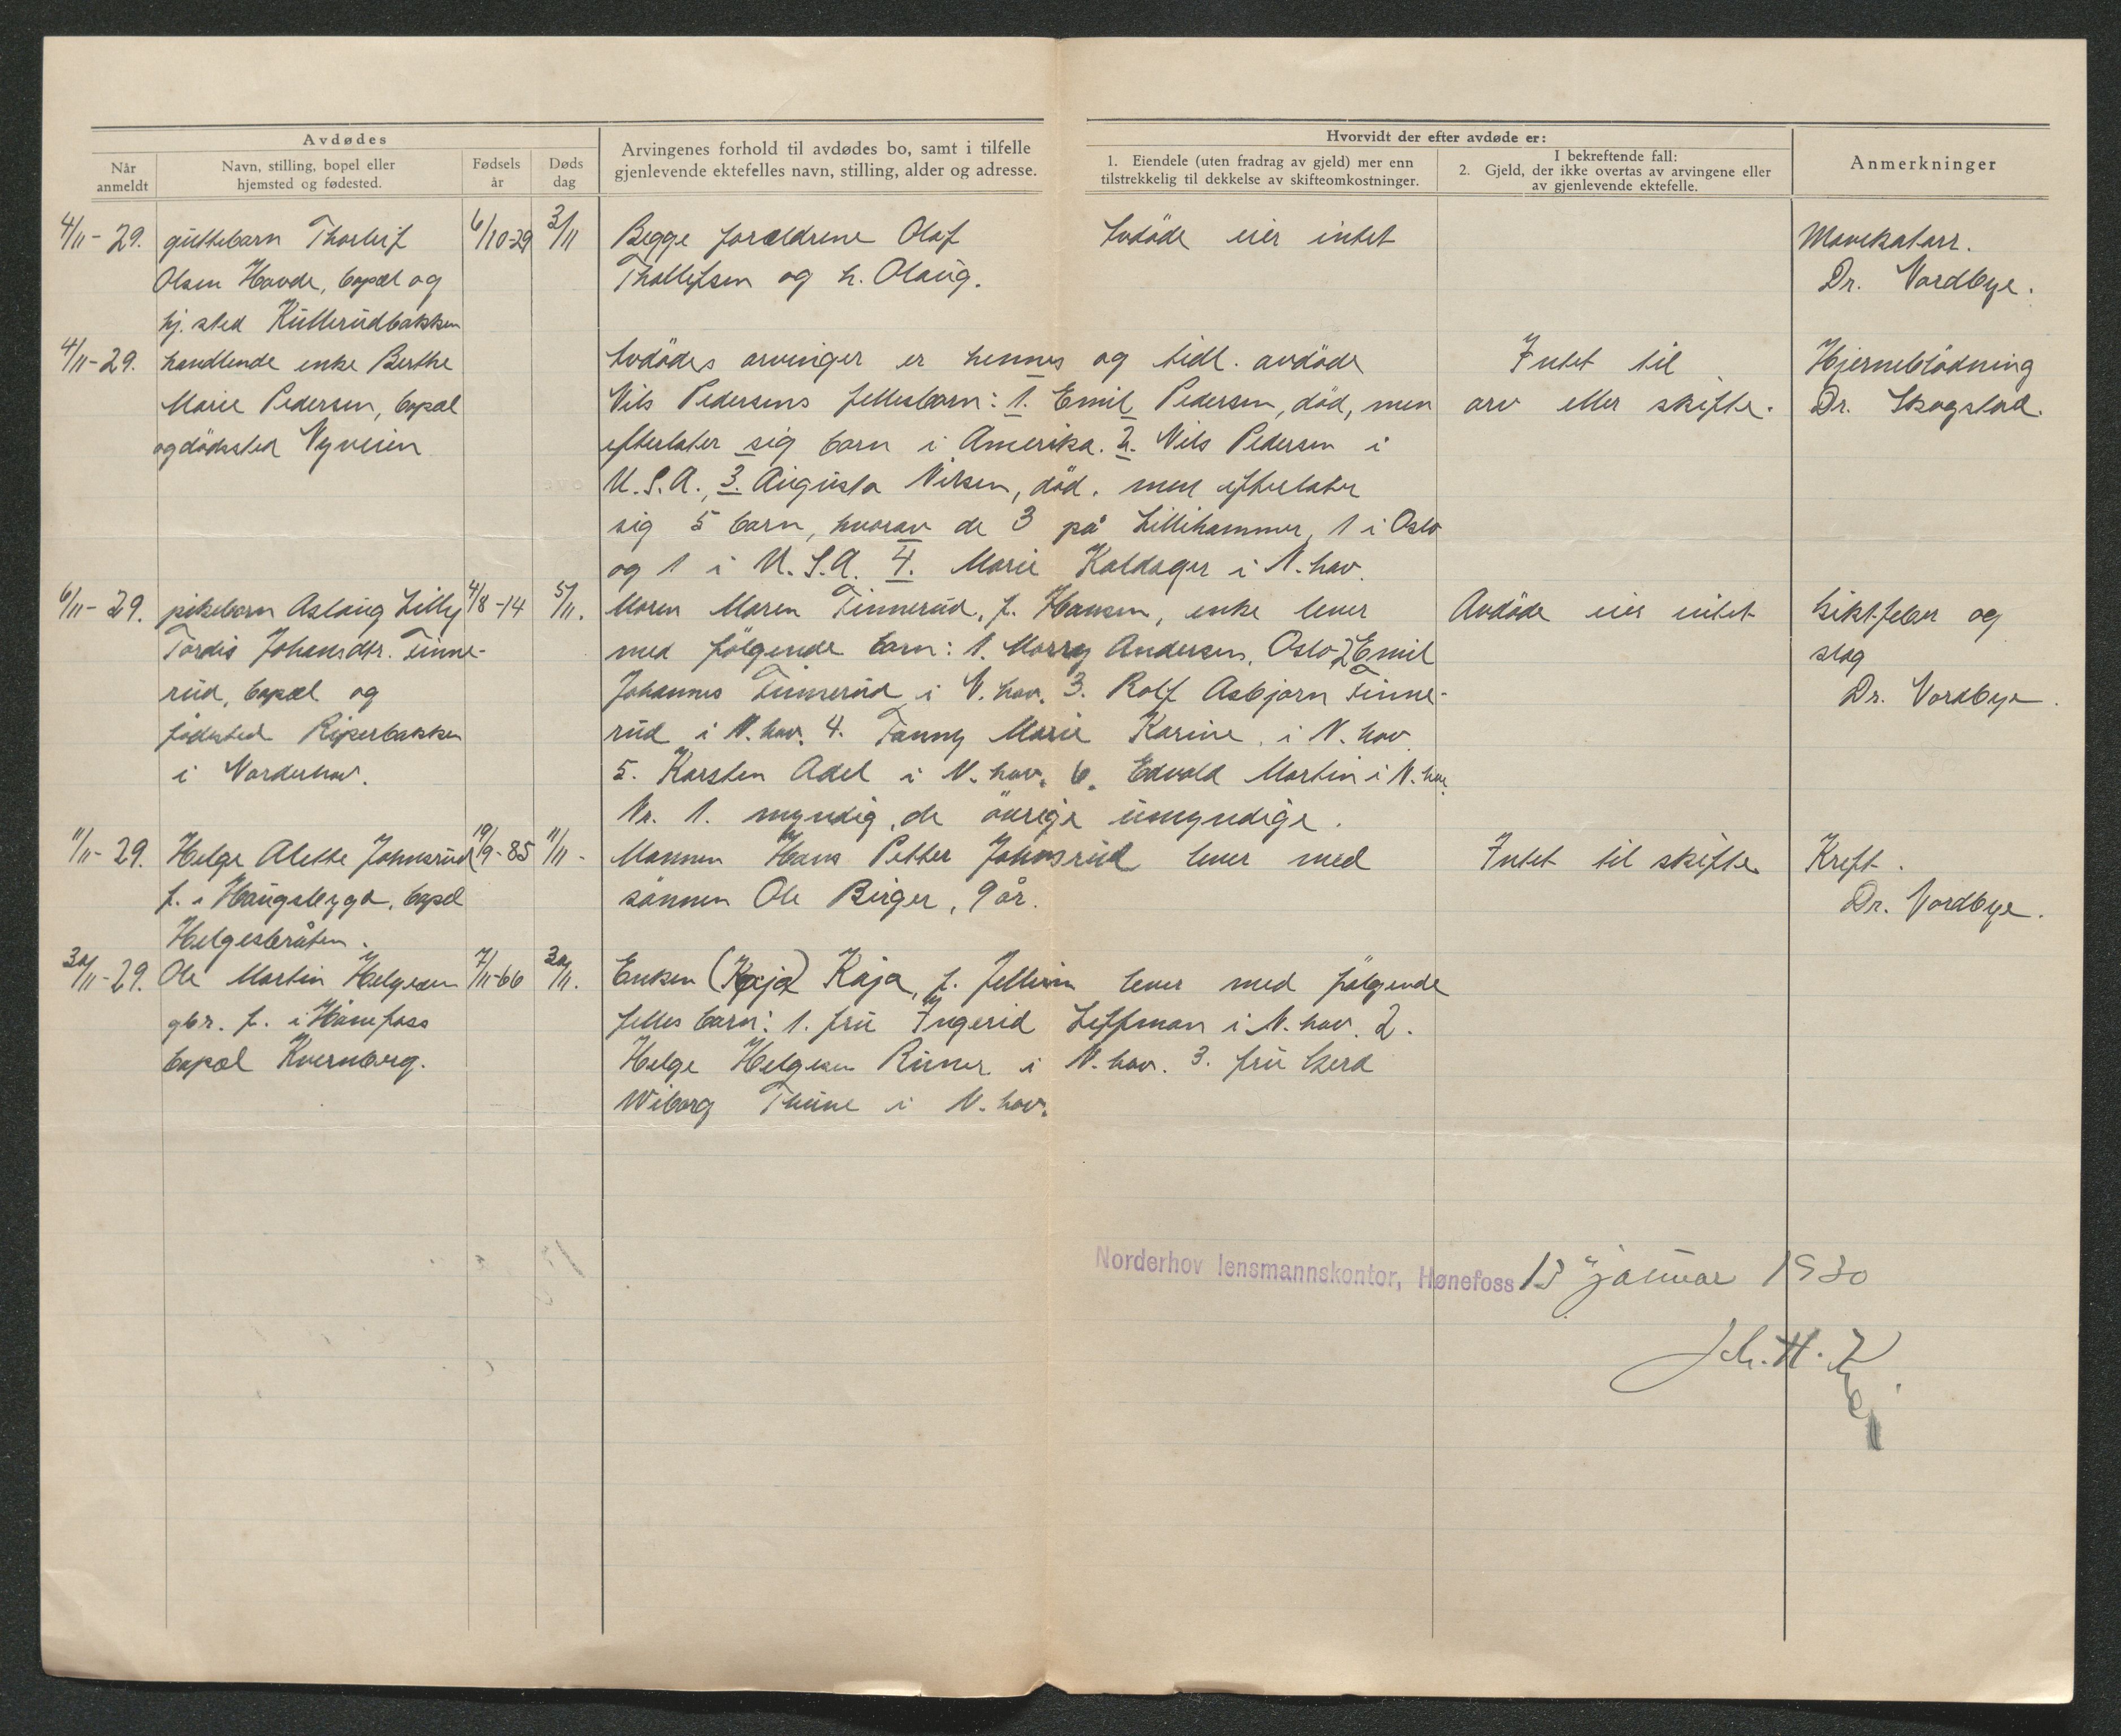 Avdødes
Når anmeldt
Navn, stilling, bopel eller hjemsted og fødested.
Fødsels år
Døds dag
Arvingenes forhold til avdødes bo, samt i tilfelle gjenlevende ektefelles navn, stilling, alder og adresse.
Hvorvidt der efter avdøde er:
1. Eiendele (uten fradrag av gjeld) mer enn tilstrekkelig til dekkelse av skifteomkostninger.
I bekreftende fall:
2. Gjeld, der ikke overtas av arvingene eller av gjenlevende ektefelle.
Anmerkninger
4/11-29. guttebarn Thorleif 6/10-29 3/11
Olsen Hovde, bopæl og
hj. sted Kullerudbakken
Begge foreldrene Olaf
Thollefsen og h. Olaug.
Avdöde eier intet
Mavekatarr.
Dr. Nordbye.
4/11-29. handlende enke Berthe
Marie Pedersen, bopæl
og dödssted Nyveien
Avdödes arvinger er hennes og tidl. avdöde
Nils Pedersens fellesbarn: 1. Emil Pedersen, död, men
efterlater sig barn i Amerika. 2. Nils Pedersen i
U.S.A., 3. Augusta Nilsen, död. men efterlater
sig 5 barn, hvorav de 3 på Lillihammer, 1 i Oslo
og 1 i U.S.A. 4. Marie Kaldager i N.hov.
Intet til
arv eller skifte.
Hjerneblödning
Dr. Skogstad.
6/11-29. pikebarn Aslaug Lilly 4/8-14 5/11.
Tordis Johansdtr. Finne-
rud, bopæl og
födested Riperbakken
i Norderhov.
Moren Maren Finnerud, f. Hansen, enke lever
med fölgende barn: 1. Morry Andersen, Oslo 2 Emil
Johannes Finnerud i N.hov. 3. Rolf Asbjørn Finne-
rud i N.hov. 4. Fanny Marie Karine, i N.hov
5. Karsten Adel i N.hov. 6. Edvald Martin i N.hov.
Nr. 1. myndig, de övrige umyndige.
Avdöde eier intet
Giktfeber og
slag
Dr. Nordbye.
11/11-29. Helga Alette Johnsrud 19/9-85 11/11-
f. i Haugsbygd, bopel
Helgesbråten.
Mannen Hans Petter Johnsrud lever med
sönnen Ole Birger, 9 år.
Intet til skifte
Kreft.
Dr. Nordbye.
30/11-29. Ole Martin Helgesen 7/11-66 30/11.
gbr. f. i Hönefoss
bopæl Kvernberg.
Enken (Kaja) Kaja, f. Jellum lever med fölgende
felles barn: 1. fru Ingerid Leffman i N.hov. 2.
Helge Helgesen Runer i N.hov. 3. fru Gerd
Wiborg Thune i N.hov.
Norderhov lensmannskontor, Hønefoss 13 januar 1930